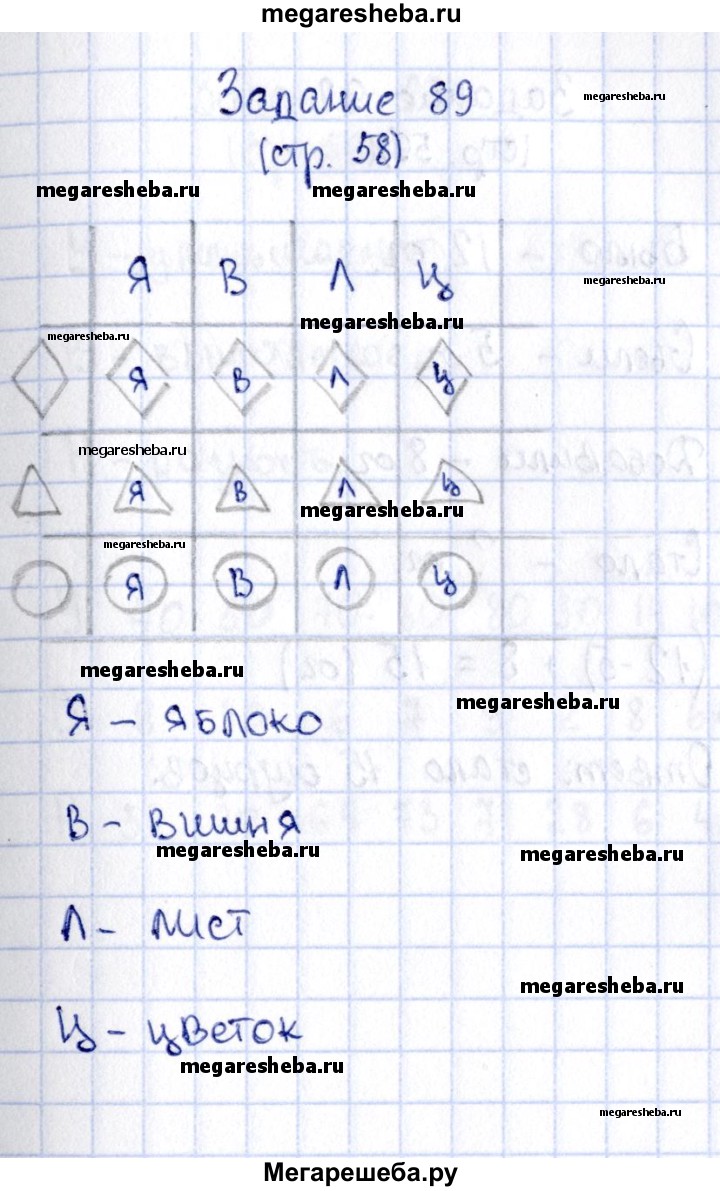 megaresheba.ru
Задание 89
megaresheba.ru
(стр. 58)
megaresheba.ru megaresheba.ru
Я В Л Ц
megaresheba.ru
megaresheba.ru
megaresheba.ru
Я В Л Ц
megaresheba.ru
Я В Л Ц
megaresheba.ru
megaresheba.ru
Я В Л Ц
megaresheba.ru
megaresheba.ru
Я – яблоко
В – вишня
megaresheba.ru
megaresheba.ru
Л – лист
megaresheba.ru
Ц – цветок
megaresheba.ru
megaresheba.ru
Мегарешеба.ру